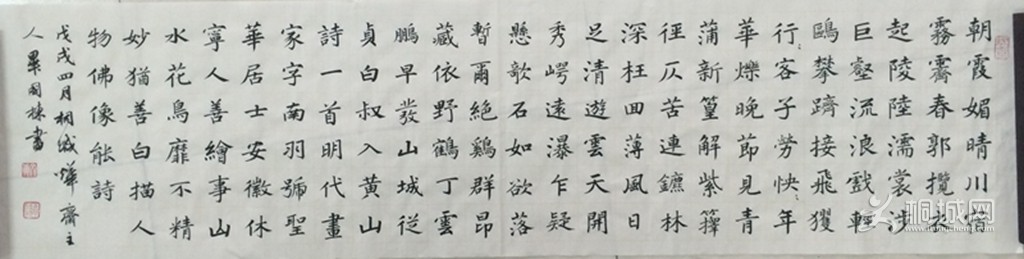 朝霞媚晴川宿
霧霽春郭攬衣
起陵陸濡裳涉
巨壑流浪戲輕
鷗攀躋接飛玃
行客子勞快年
華爍晚節見青
蒲新篁解紫籜
徑仄苦連鑣林
深枉回薄風日
足清遊雲天開
秀崿遠瀑乍疑
懸歌石如欲落
暫爾絕鷄群昂
藏依野鶴丁雲
鵬早發山城從
貞白叔入黃山
詩一首明代畫
家字南羽號聖
華居士安徽休
寧人善繪事山
水花鳥靡不精
妙猶善白描人
物佛像能詩
戊戌四月桐城燁齋主
人畢國棟書
桐城网